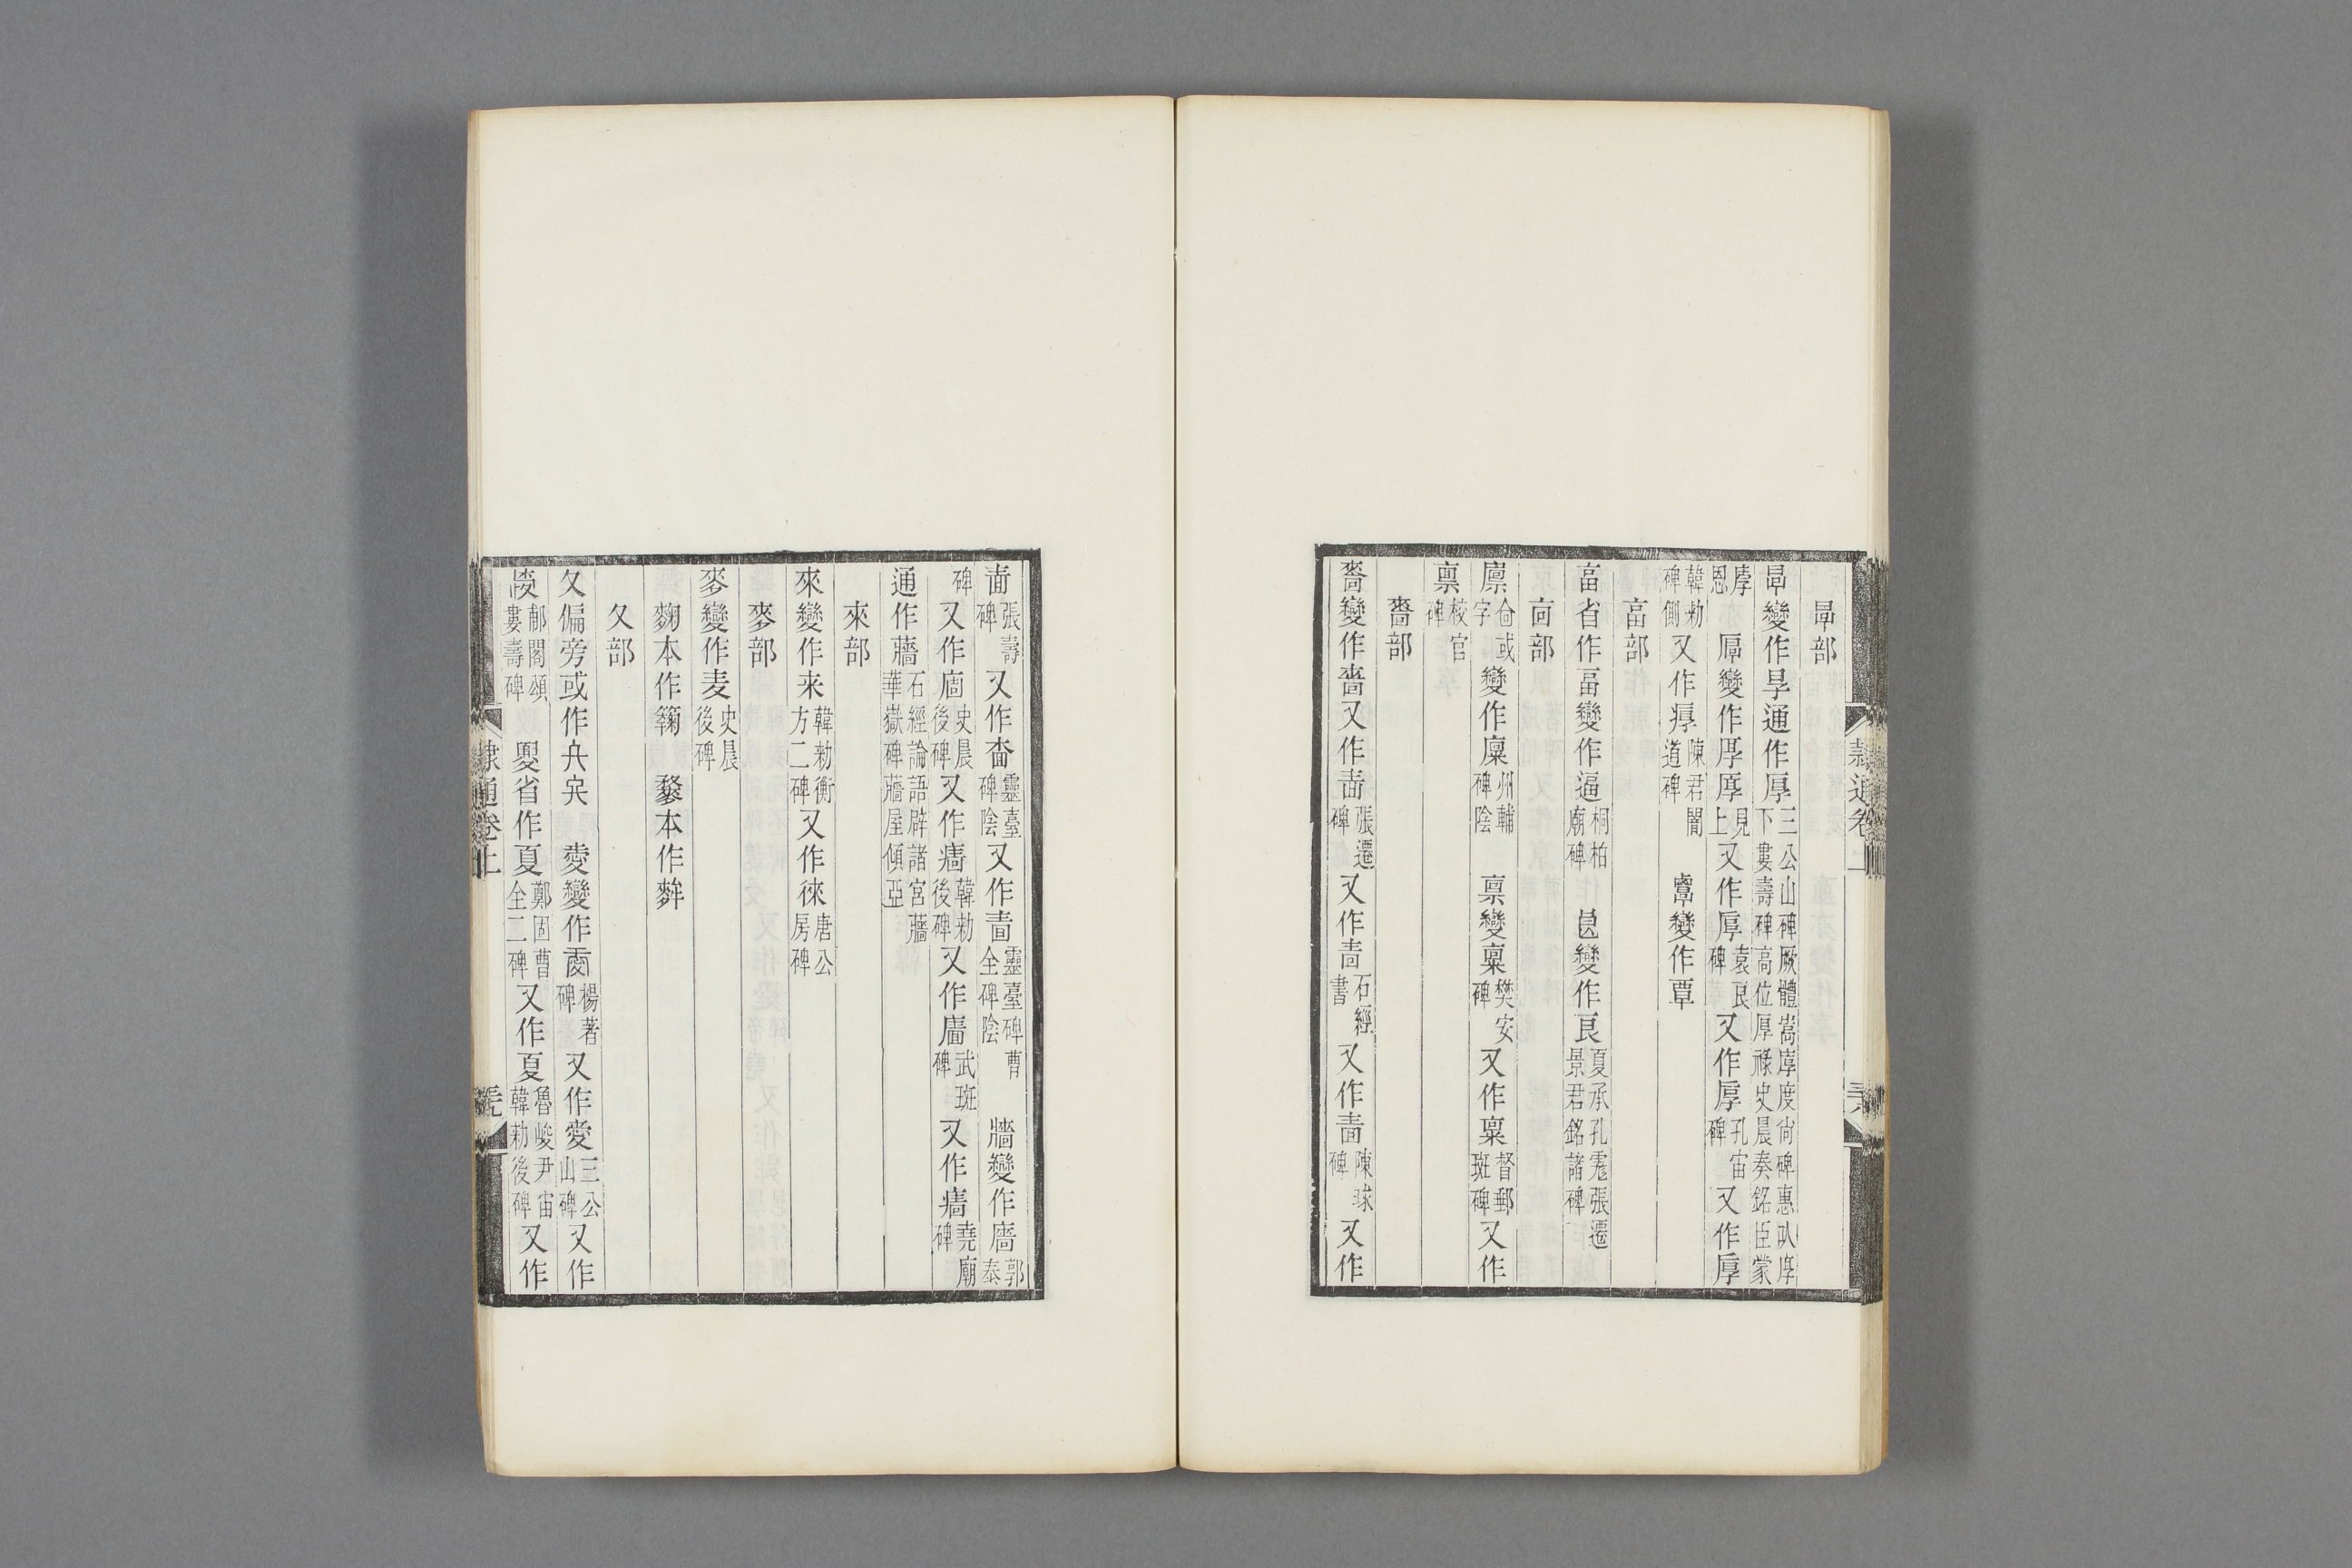 㫗部
㫗變作㫗通作厚三公山碑厥體嵩厚度尚碑惠以厚下婁壽碑高位厚祿史晨奏銘臣蒙
厚恩 厚變作厚厚見上又作厚袁良碑又作厚孔宙碑又作厚
韓勑碑側又作𢈈陳君閣道碑 覃變作覃
畗部
畗省作畐變作逼桐柏廟碑 良變作良夏承孔彪張遷景君銘諸碑
㐭部
廩㐭或字變作廩州輔碑陰 稟變稟樊安碑又作稟督郵斑碑又作
稟校官碑
嗇部
嗇變作嗇又作嗇張遷碑又作嗇石經書又作嗇陳球碑又作
嗇張壽碑又作嗇靈臺碑陰又作嗇靈臺碑曹全碑陰 牆變作廧郭泰
碑又作廧史晨後碑又作廧韓勑後碑又作廧武斑碑又作廧堯廟碑
通作蘠石經論語辟諸宮蘠華嶽碑蘠屋傾亞
來部
來變作来韓勑衡方二碑又作徠唐公房碑
麥部
麥變作麦史晨後碑
麴本作䈮 麰本作麰
夊部
夊偏旁或作 㤅變作㤅楊著碑又作愛三公山碑又作
郙閣頌婁壽碑 夏省作夏鄭固曹全二碑又作夏魯峻尹宙韓勑後碑又作
隸通卷上